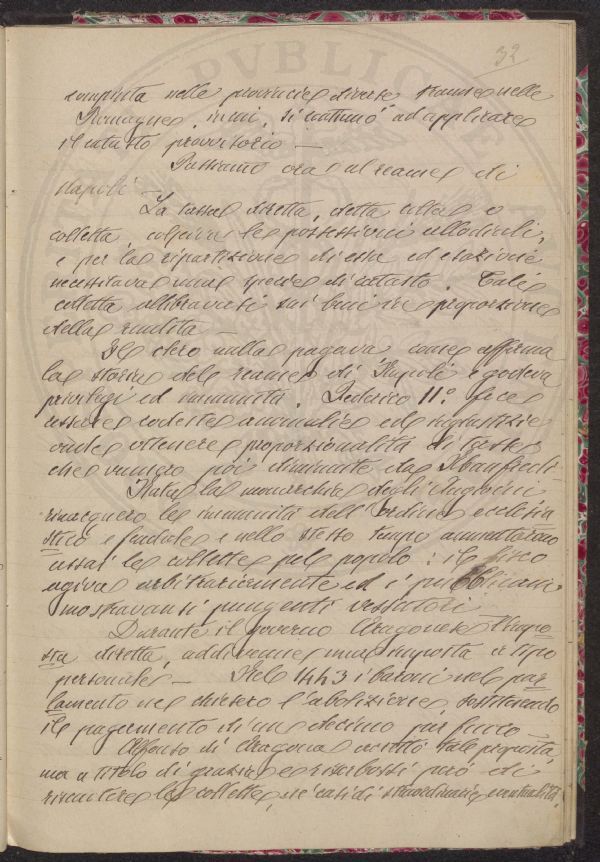 32
compiuta nelle provincie diverse, tranne nelle
Romagne, in cui, si continuò ad applicare
il catasto provvisorio —
Passiamo ora al reame di
Napoli —
La tassa diretta, detta colta o
colletta, colpiva le possessioni allodiali,
e per la ripartizione di essa ed esazione
necessitava una specie di catasto. Tale
colletta allibravasi sui beni in proporzione
della rendita —
Il clero nulla pagava come afferma
la storia del reame di Napoli e godeva
privilegi ed immunità. Federico II.º fece
cessare codeste anomalie ed ingiustizie
onde ottenere proporzionalità di tasse
che vennero poi diminuite da Manfredi —
Nata la monarchia degli Angioini
rinacquero le immunità dell'ordine ecclesia
stico e feudale e nello stesso tempo aumentarono
assai le collette pel popolo: il fisco
agiva arbitrariamente ed i pubblicani
mostravansi pungenti vessatori
Durante il governo Aragonese l'impo
sta diretta, addivenne una imposta a tipo
personale — Nel 1443 i baroni nel par
lamento ne chiesero l'abolizione, sostituendo
il pagamento di un decimo per fuoco —
Alfonso di Aragona accettò tale proposta,
ma a titolo di grazia e riserbossi però di
riscuotere le collette, ne' casi di straordinarie eventualità,